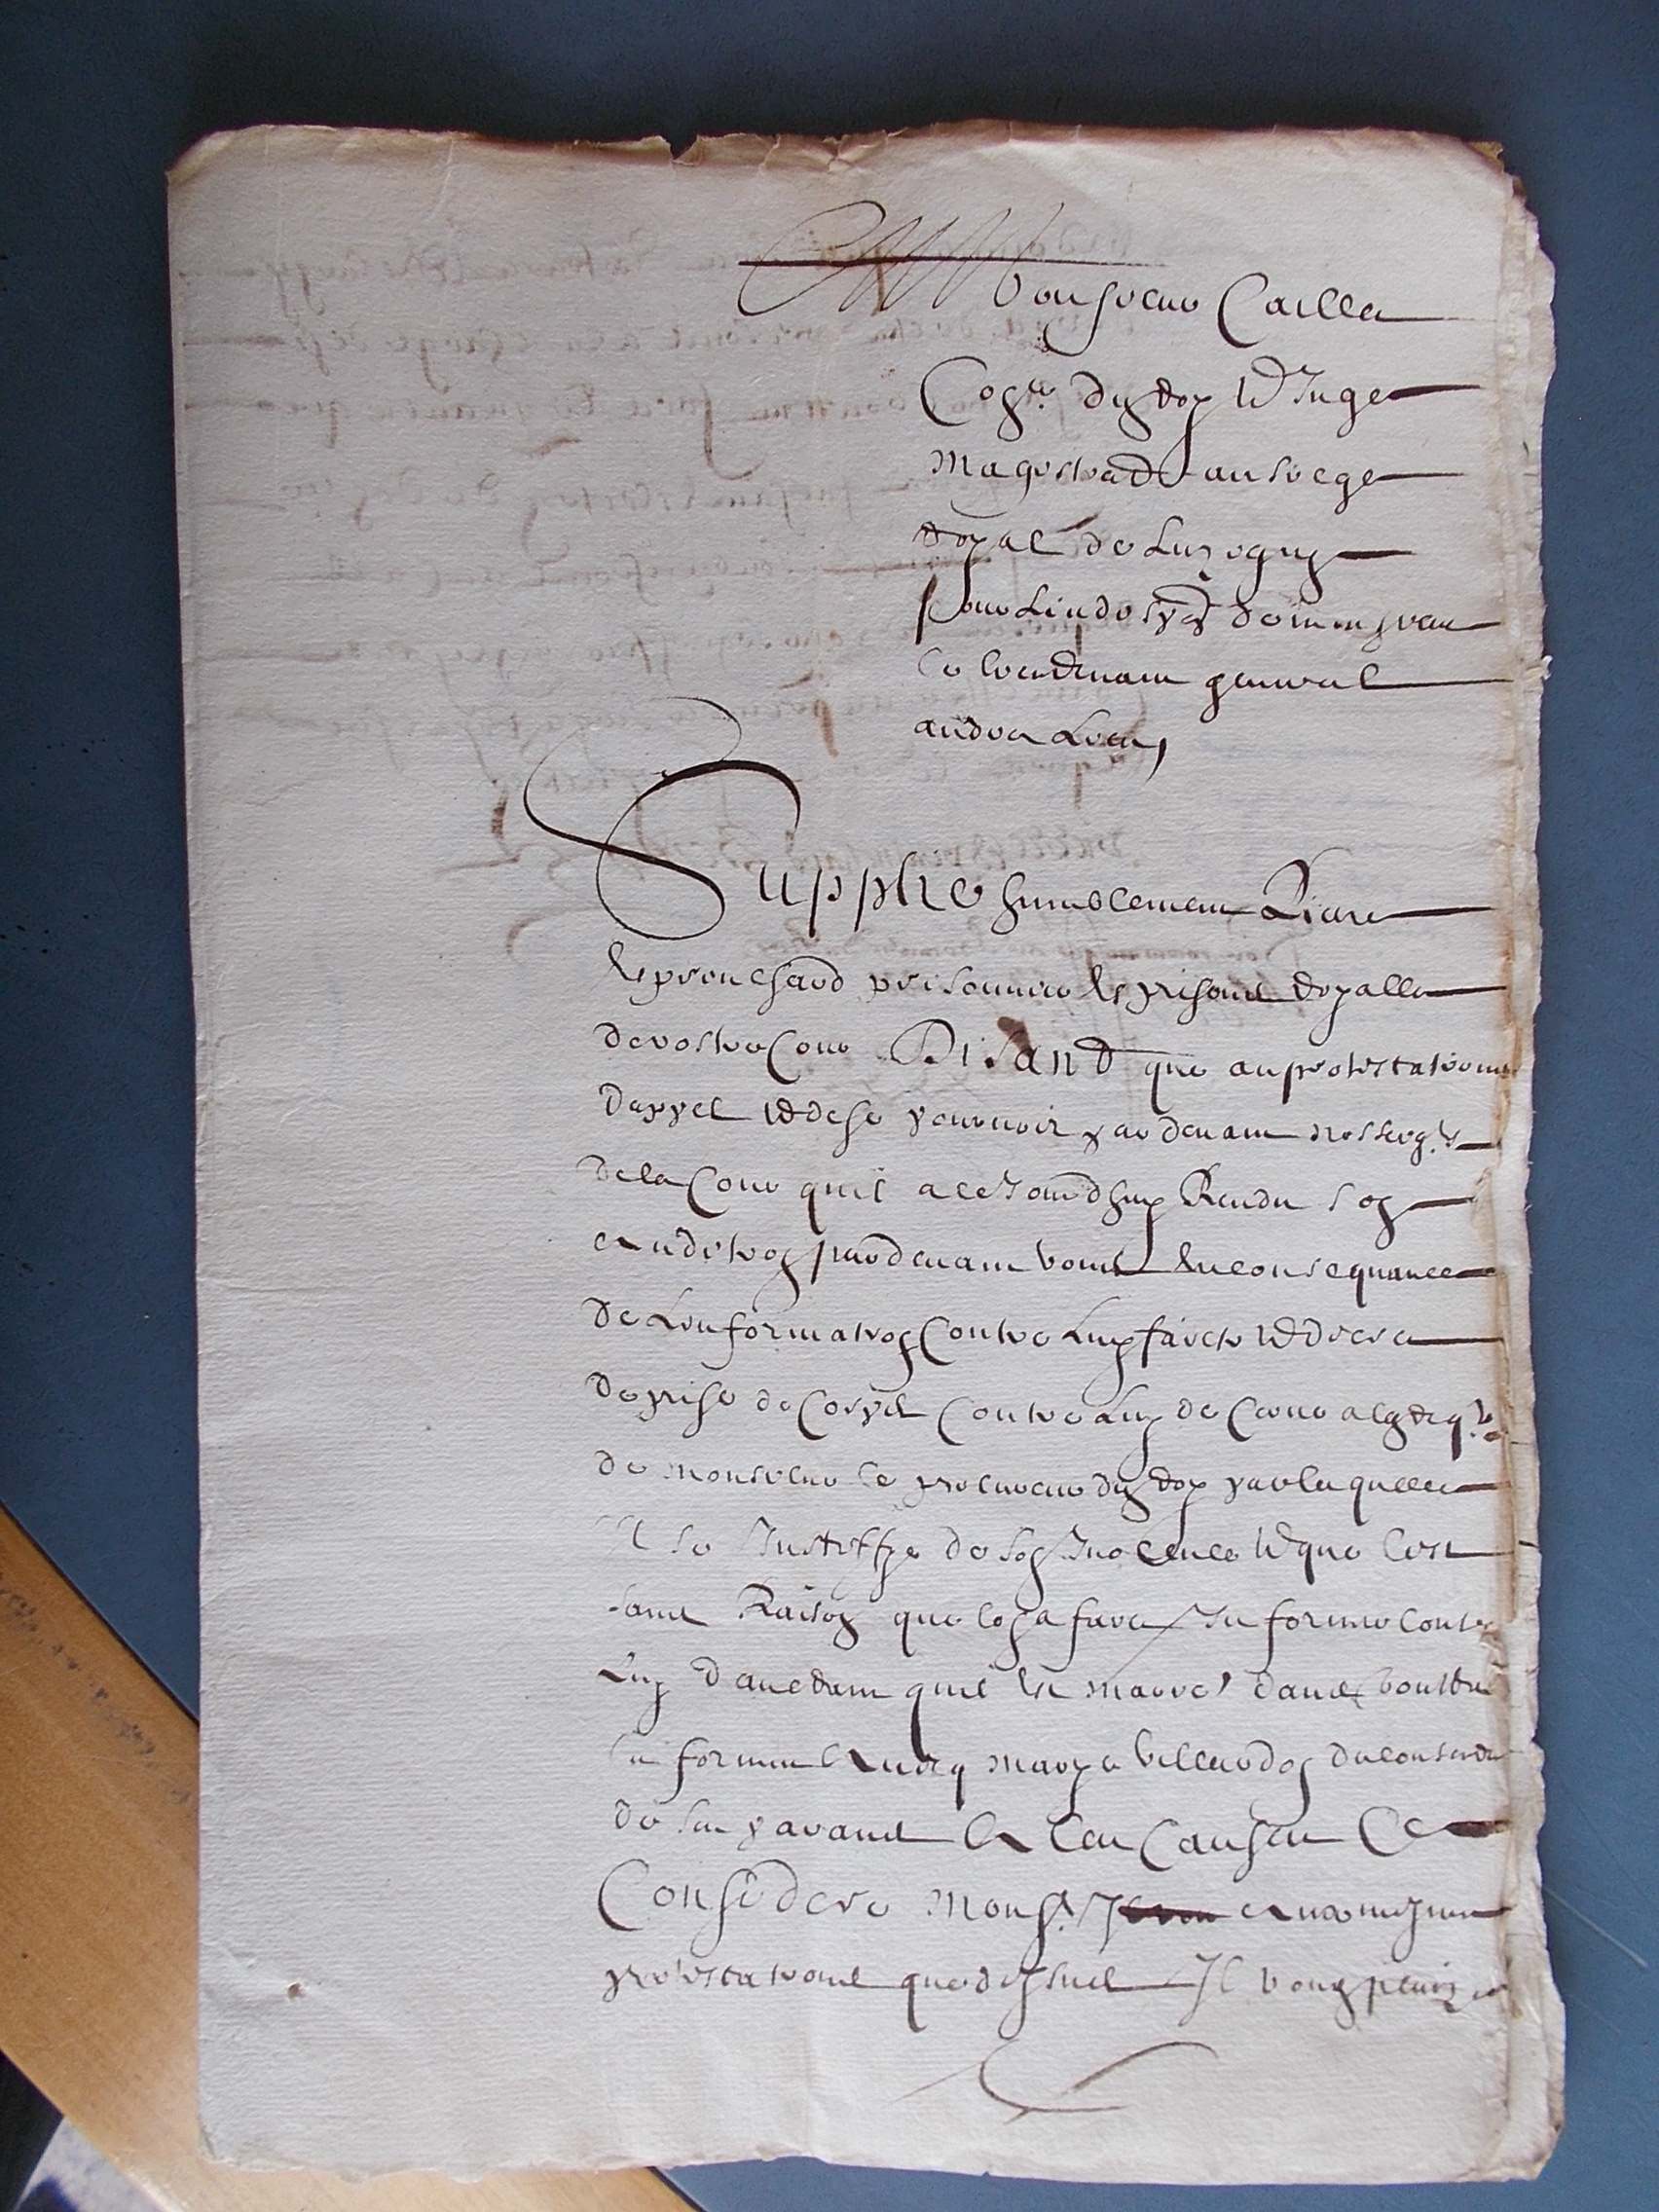 Monsieur Caille
Con.er du Roy et Juge
magistrad au siege
Royal de Luzignan
pour Lindosp.on de monsieur
le lieutenant general
audit Lieu,
Supplie humblement Piere
prisonnier es prisons Royalle
de vostre Cour Disand que au protestations
dappel et de se pourvoir par devant nosseig.rs
de la Cour quil a ce Jourdhuy Rendu son
audition par devant vous En consequance
de Linformation Contre Luy faicte et decret
de prise de Corps Contre Luy decerne a la Req.te
de monsieur le procureur du Roy par laquelle
Il se Justiffye de son Inocence et que cest
sans Raison que lon a faict Informer contre
Luy dautant quil est
de ses parans A Ces Causes Ce
Considere Mons.r aux mesmes
protestations que dessus Il vous plaise